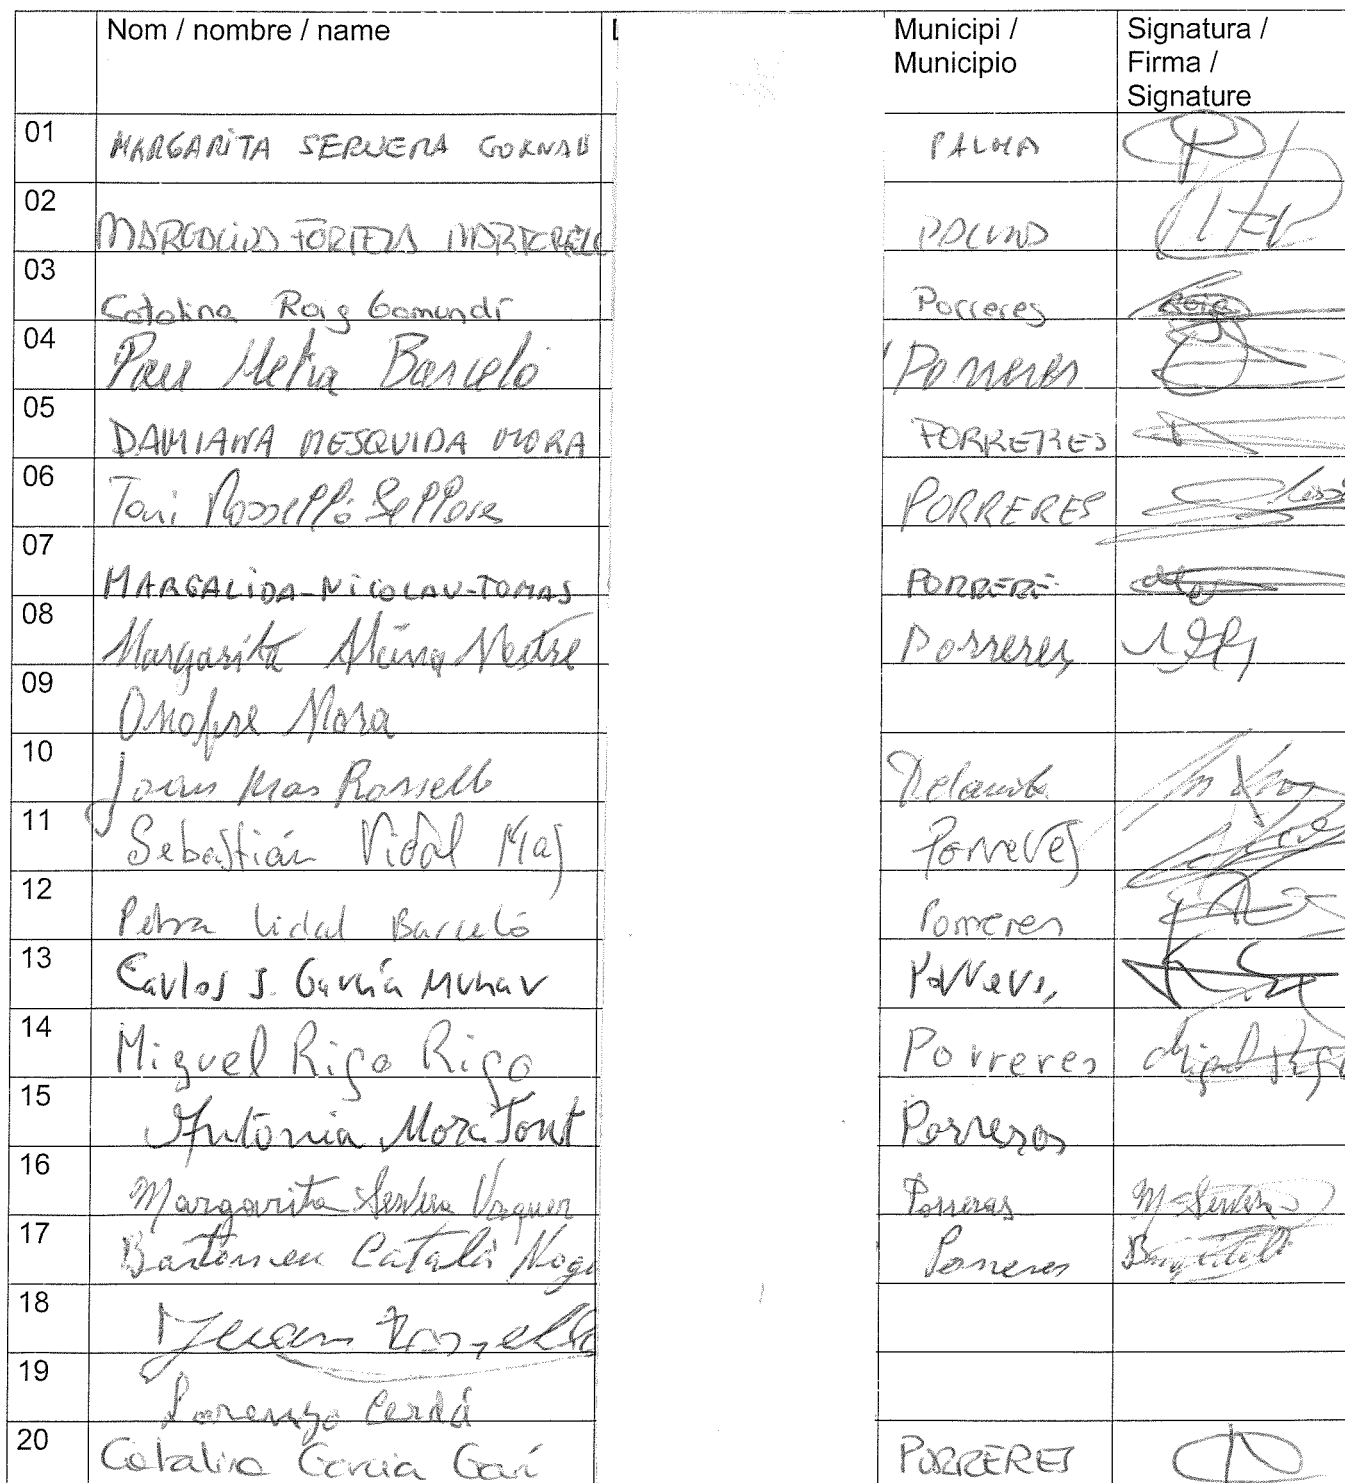 Nom / nombre / name Municipi / Signatura /
Municipio Firma /
Signature
01 MARGARITA SERVERA GORNALS PALMA
02 FORTEZA MARTORELL
03 Catalina Roig Gomundi Porreres Roig
04 Pau Melia Barceló Porreres
05 DAMIANA MESQUIDA MORA PORRERES
06 Toni Rosselló PORRERES
07 MARGALIDA-NICOLAU-TOMAS PORRERE
08 Margarita Mestre Porreres
09 Onofre Mora
10 Joan Mas Rosselló
11 Sebastián Vidal Mas Porreres
12 Petra Vidal Barceló Porreres
13 Carlos J. García Munar Porreres
14 Miguel Rigo Rigo Porreres Miguel Rigo
15 Antonia Mora Font Porreres
16 Margarita Servera Vaquer Porreras M Servera
17 Bartomeu Català Nog Porreres
18 Juan Rosselló
19 Lorenzo Cerdá
20 Catalina Garcia Garí PORRERES